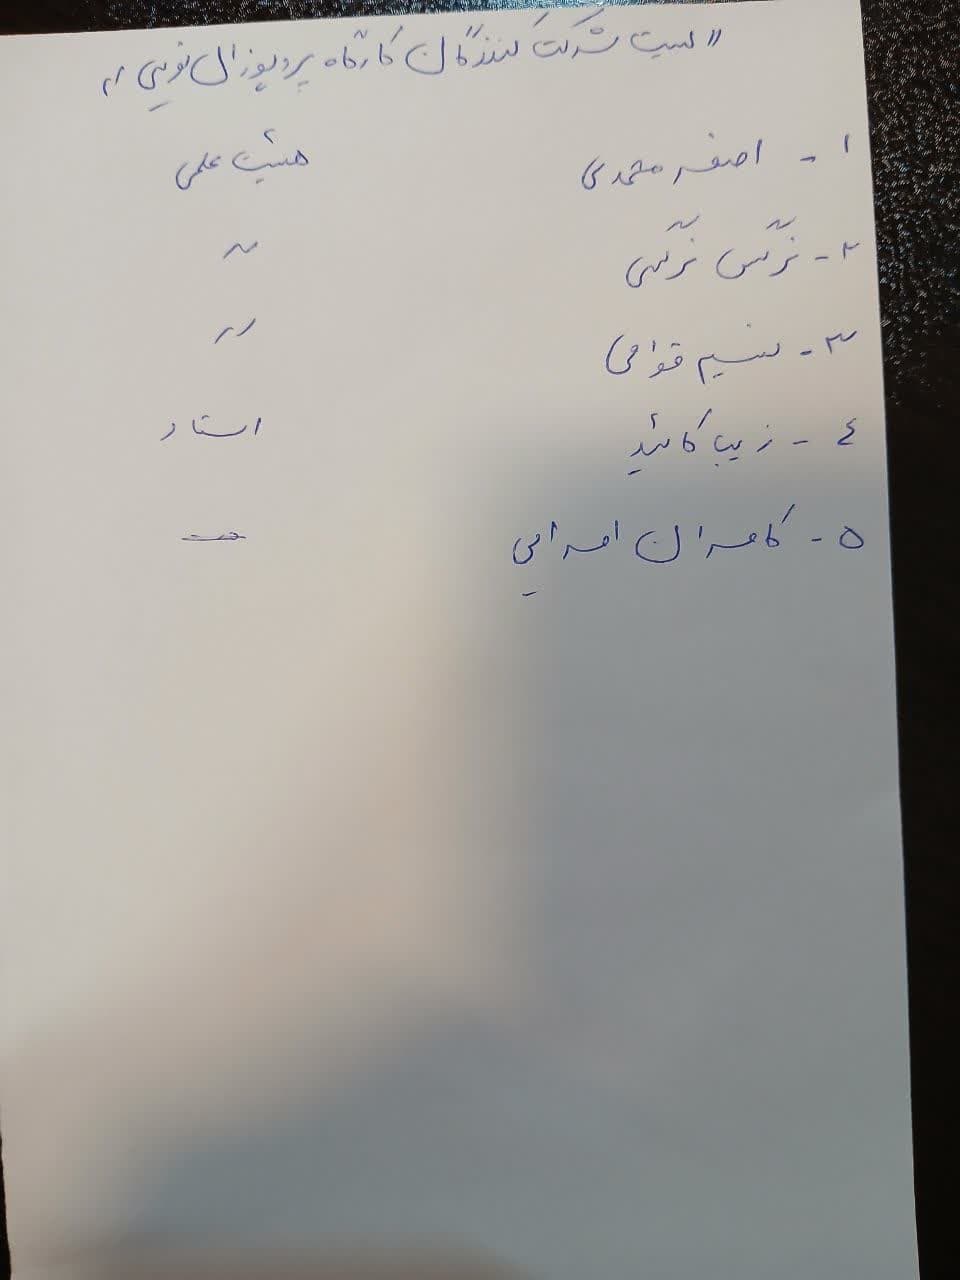 " لیست شرکت کنندگان کارگاه پروپوزال نویسی "
۱ - اصغر محمدی هیئت علمی
۲ - نرگس نرگسی "
۳ - نسیم قوامی "
٤ - زیبا کائید استاد
۵ - کامران امرایی